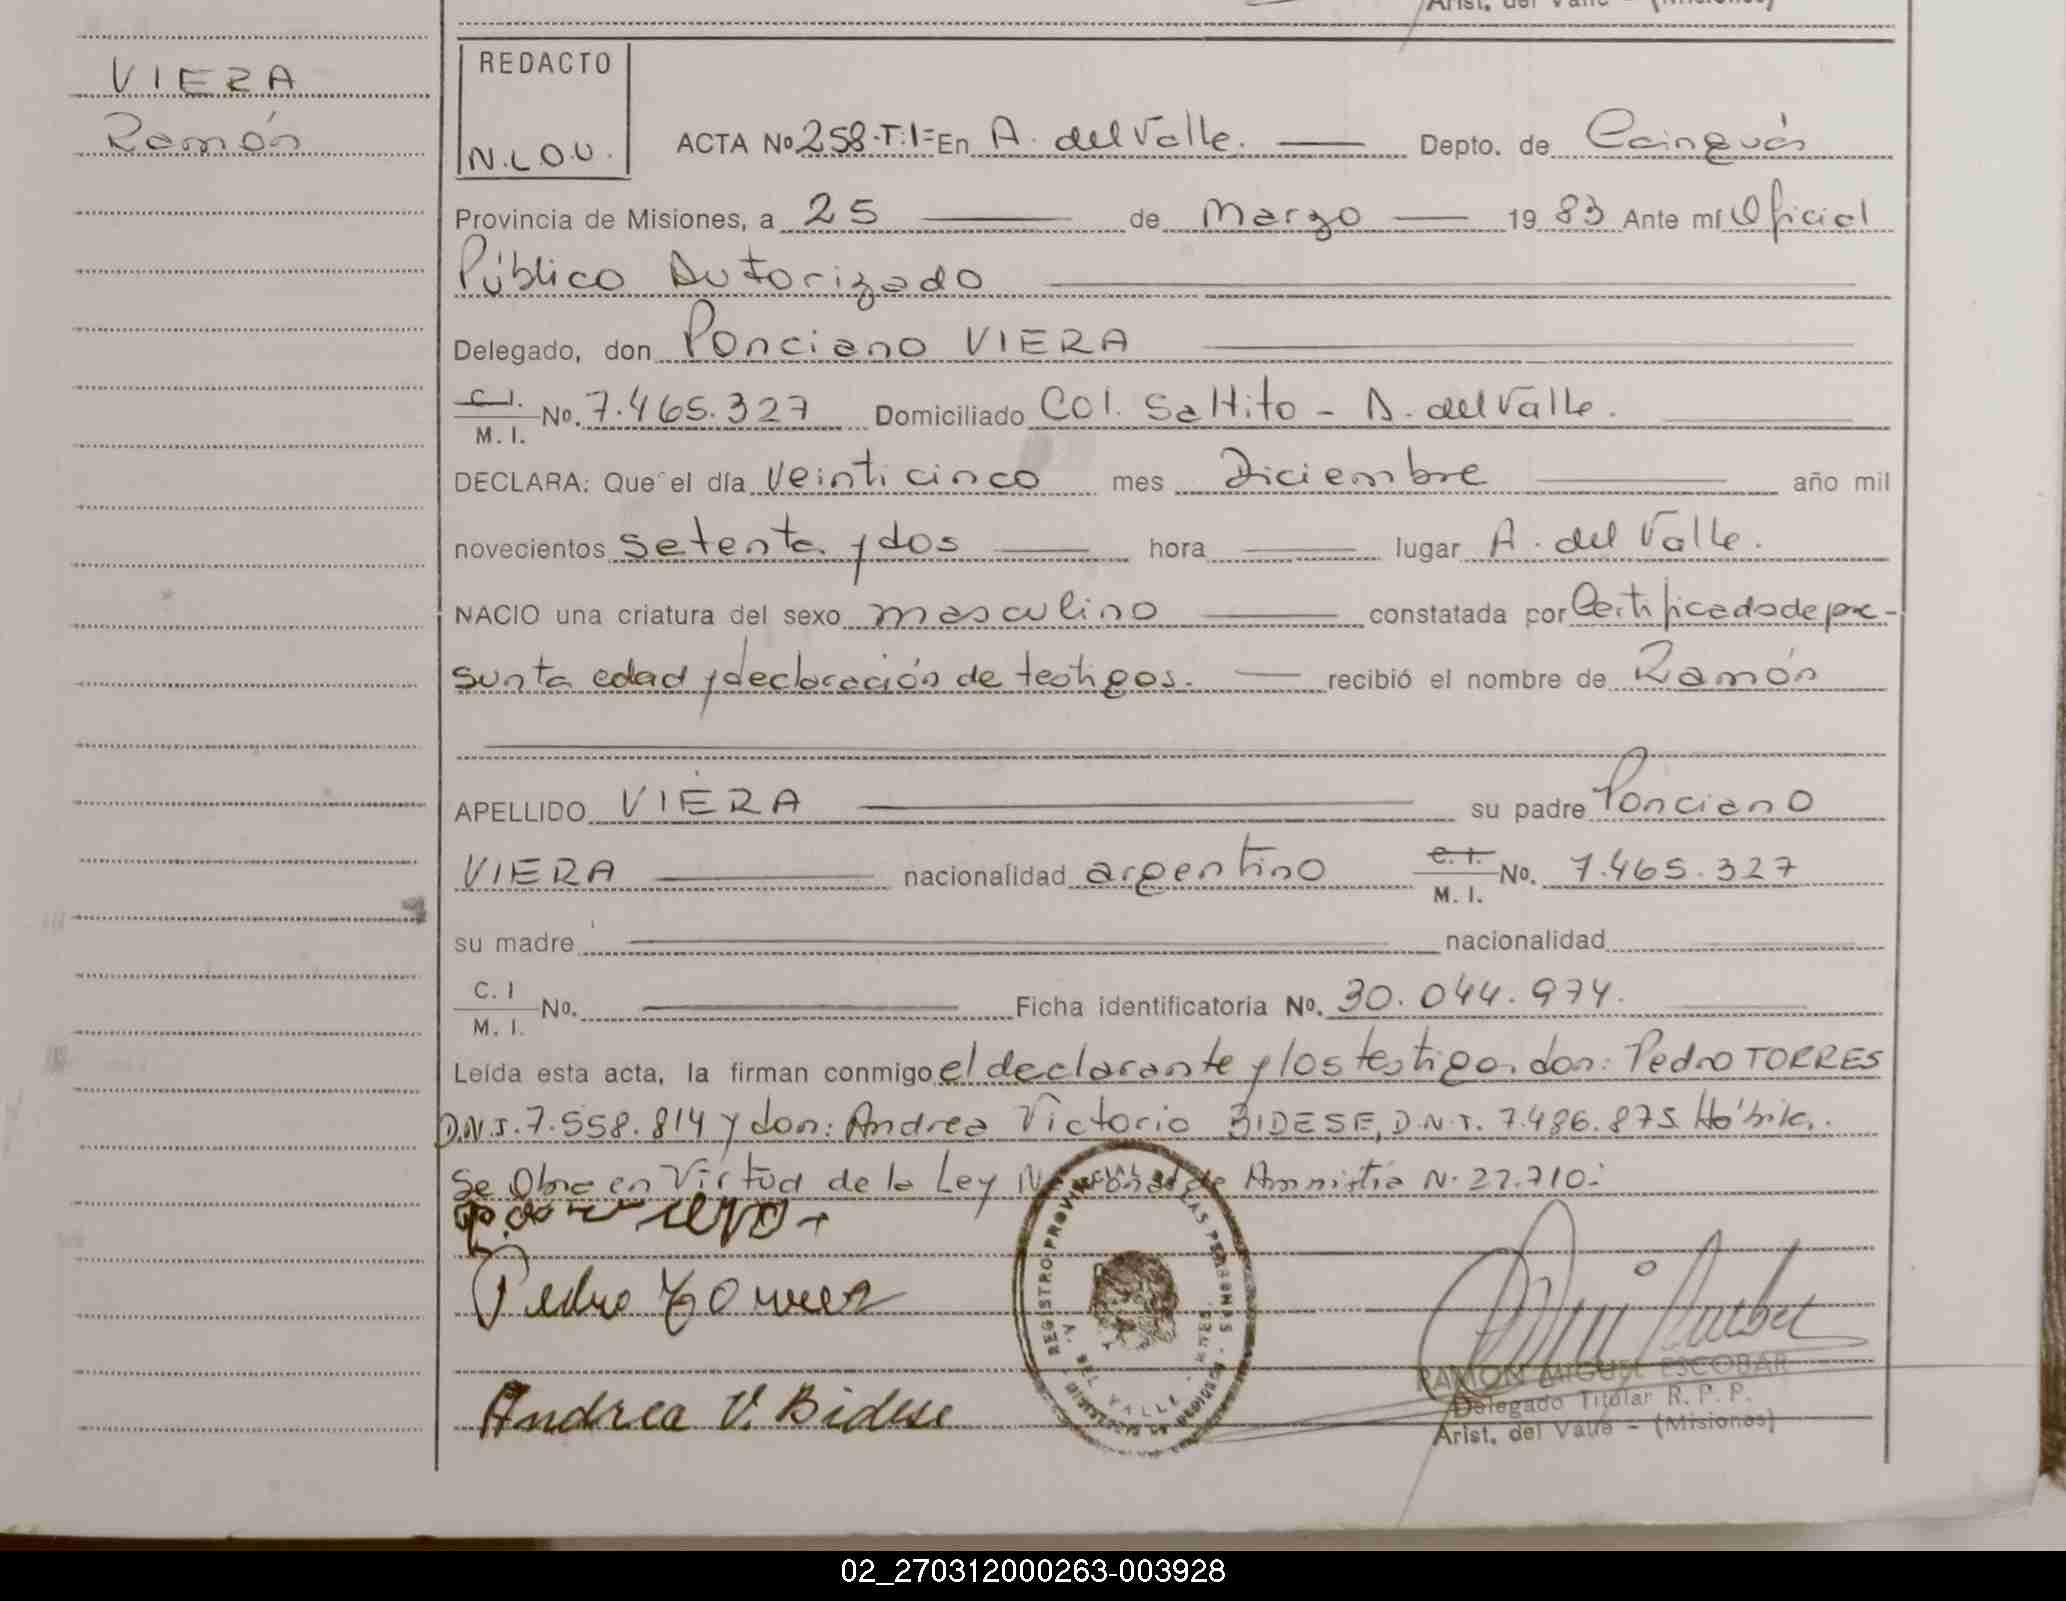 Arist. del Valle - (Misiones)
VIERA
Ramón
REDACTO
N.L.O.U.
ACTA No 258-T:1= En A. del Valle. Depto. de Cainguás
Provincia de Misiones, a 25 de Marzo 1983 Ante mí Oficial
Público Autorizado
Delegado, don Ponciano VIERA
C.I. M. I. No. 7.465.327 Domiciliado Col. Saltito - A. del Valle.
DECLARA: Que el día Veinticinco mes Diciembre año mil
novecientos setenta y dos hora lugar A. del Valle.
NACIO una criatura del sexo masculino constatada por Certificado de pre-
sunta edad y declaración de testigos. recibió el nombre de Ramón
APELLIDO VIERA su padre Ponciano
VIERA nacionalidad argentino C. I. M. I. No. 7.465.327
su madre nacionalidad
C. I M. I. No. Ficha identificatoria No. 30.044.974.
Leída esta acta, la firman conmigo el declarante y los testigos don: Pedro TORRES
D.N.I. 7.558.814 y don: Andrea Victorio BIDESE, D.N.I. 7.486.875 Hábiles.
Se Obra en Virtud de la Ley Nacional de Amnistía N. 22.710.
Pedro Torres
REGISTRO PROVINCIAL DE LAS PERSONAS
DEL VALLE
Andrea V. Bidese
RAMON MIGUEL ESCOBAR
Delegado Titular R. P. P.
Arist. del Valle - (Misiones)
02_270312000263-003928